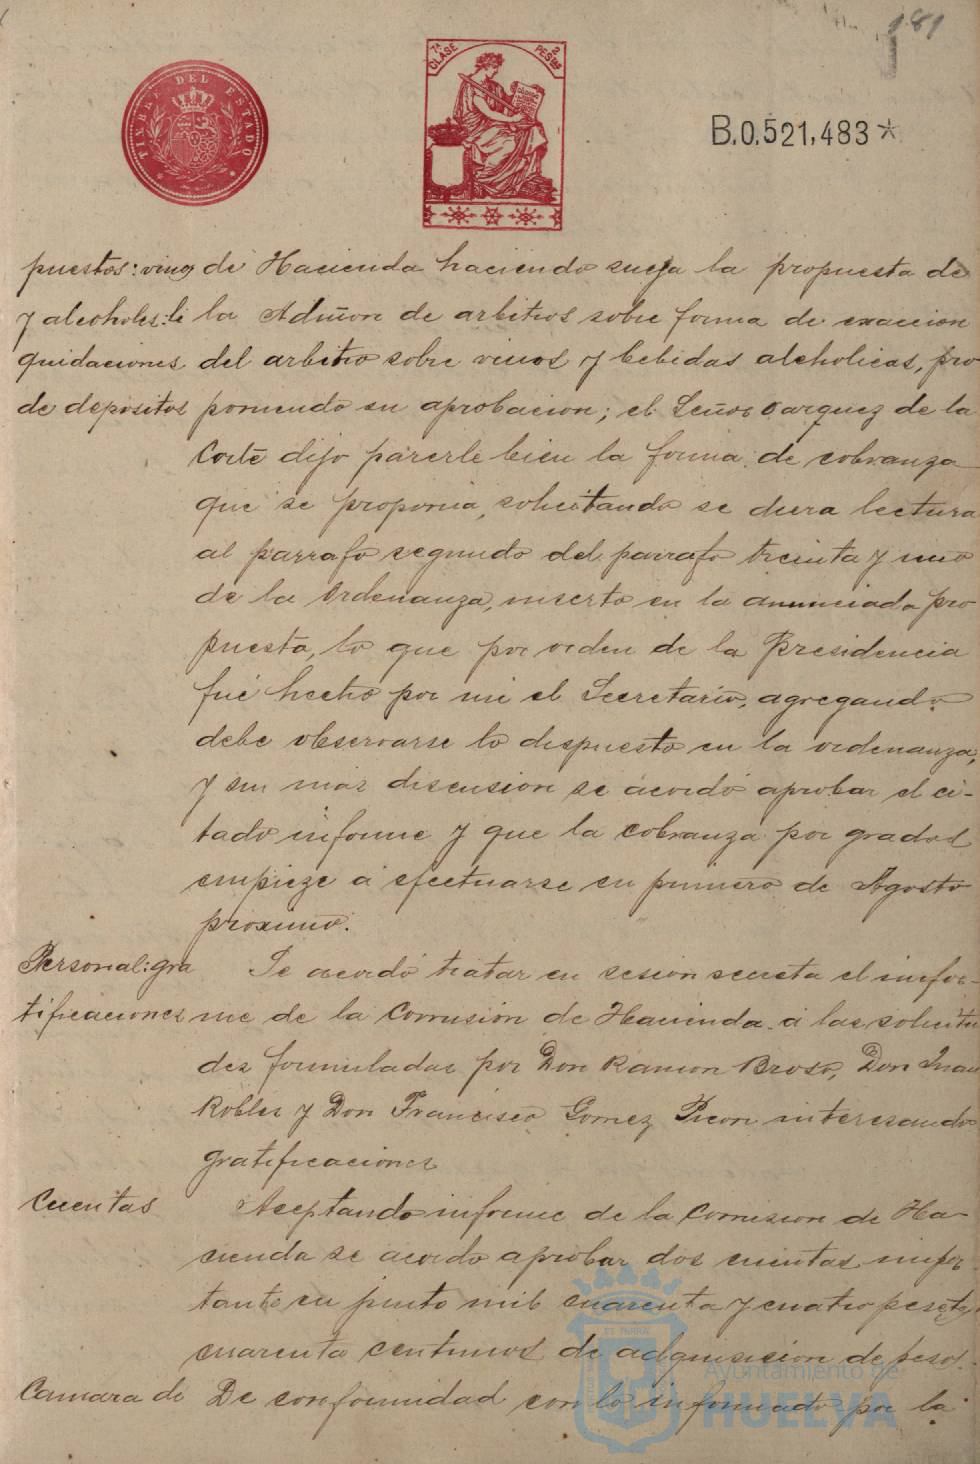 181
TIMBRE DEL ESTADO
7ª CLASE
2 PESTAS
B.0.521,483*
puestos: vinos de Hacienda haciendo suya la propuesta de
y alcoholes: li la Admon de arbitrios sobre forma de exaccion
quidaciones del arbitrio sobre vinos y bebidas alcoholicas, pro
de depositos poniendo su aprobacion; el Señor Vazquez de la
Corte dijo parerle bien la forma de cobranza
que se proponia, solicitando se diera lectura
al parrafo segundo del parrafo treinta y uno
de la Ordenanza, inserto en la anunciada pro
puesta, lo que por orden de la Presidencia
fué hecho por mi el Secretario, agregando
debe observarse lo dispuesto en la ordenanza,
y sin mas discusion se acordó aprobar el ci-
tado informe y que la cobranza por grados
empieze á efectuarse en primero de Agosto
proximo.
Personal: gra Se acordó tratar en sesion secreta el infor-
tificaciones me de la Comision de Hacienda á las solicitu
des formuladas por Don Ramon Broso, Don Juan
Robles y Don Francisco Gomez Picon interesando
gratificaciones
Cuentas Aceptando informe de la Comision de Ha-
cienda se acordo aprobar dos cuentas impor-
tante en junto mil cuarenta y cuatro pesetas
cuarenta centimos de adquisicion de pesos.
Camara de De conformidad con lo informado por la
Ayuntamiento de
HUELVA